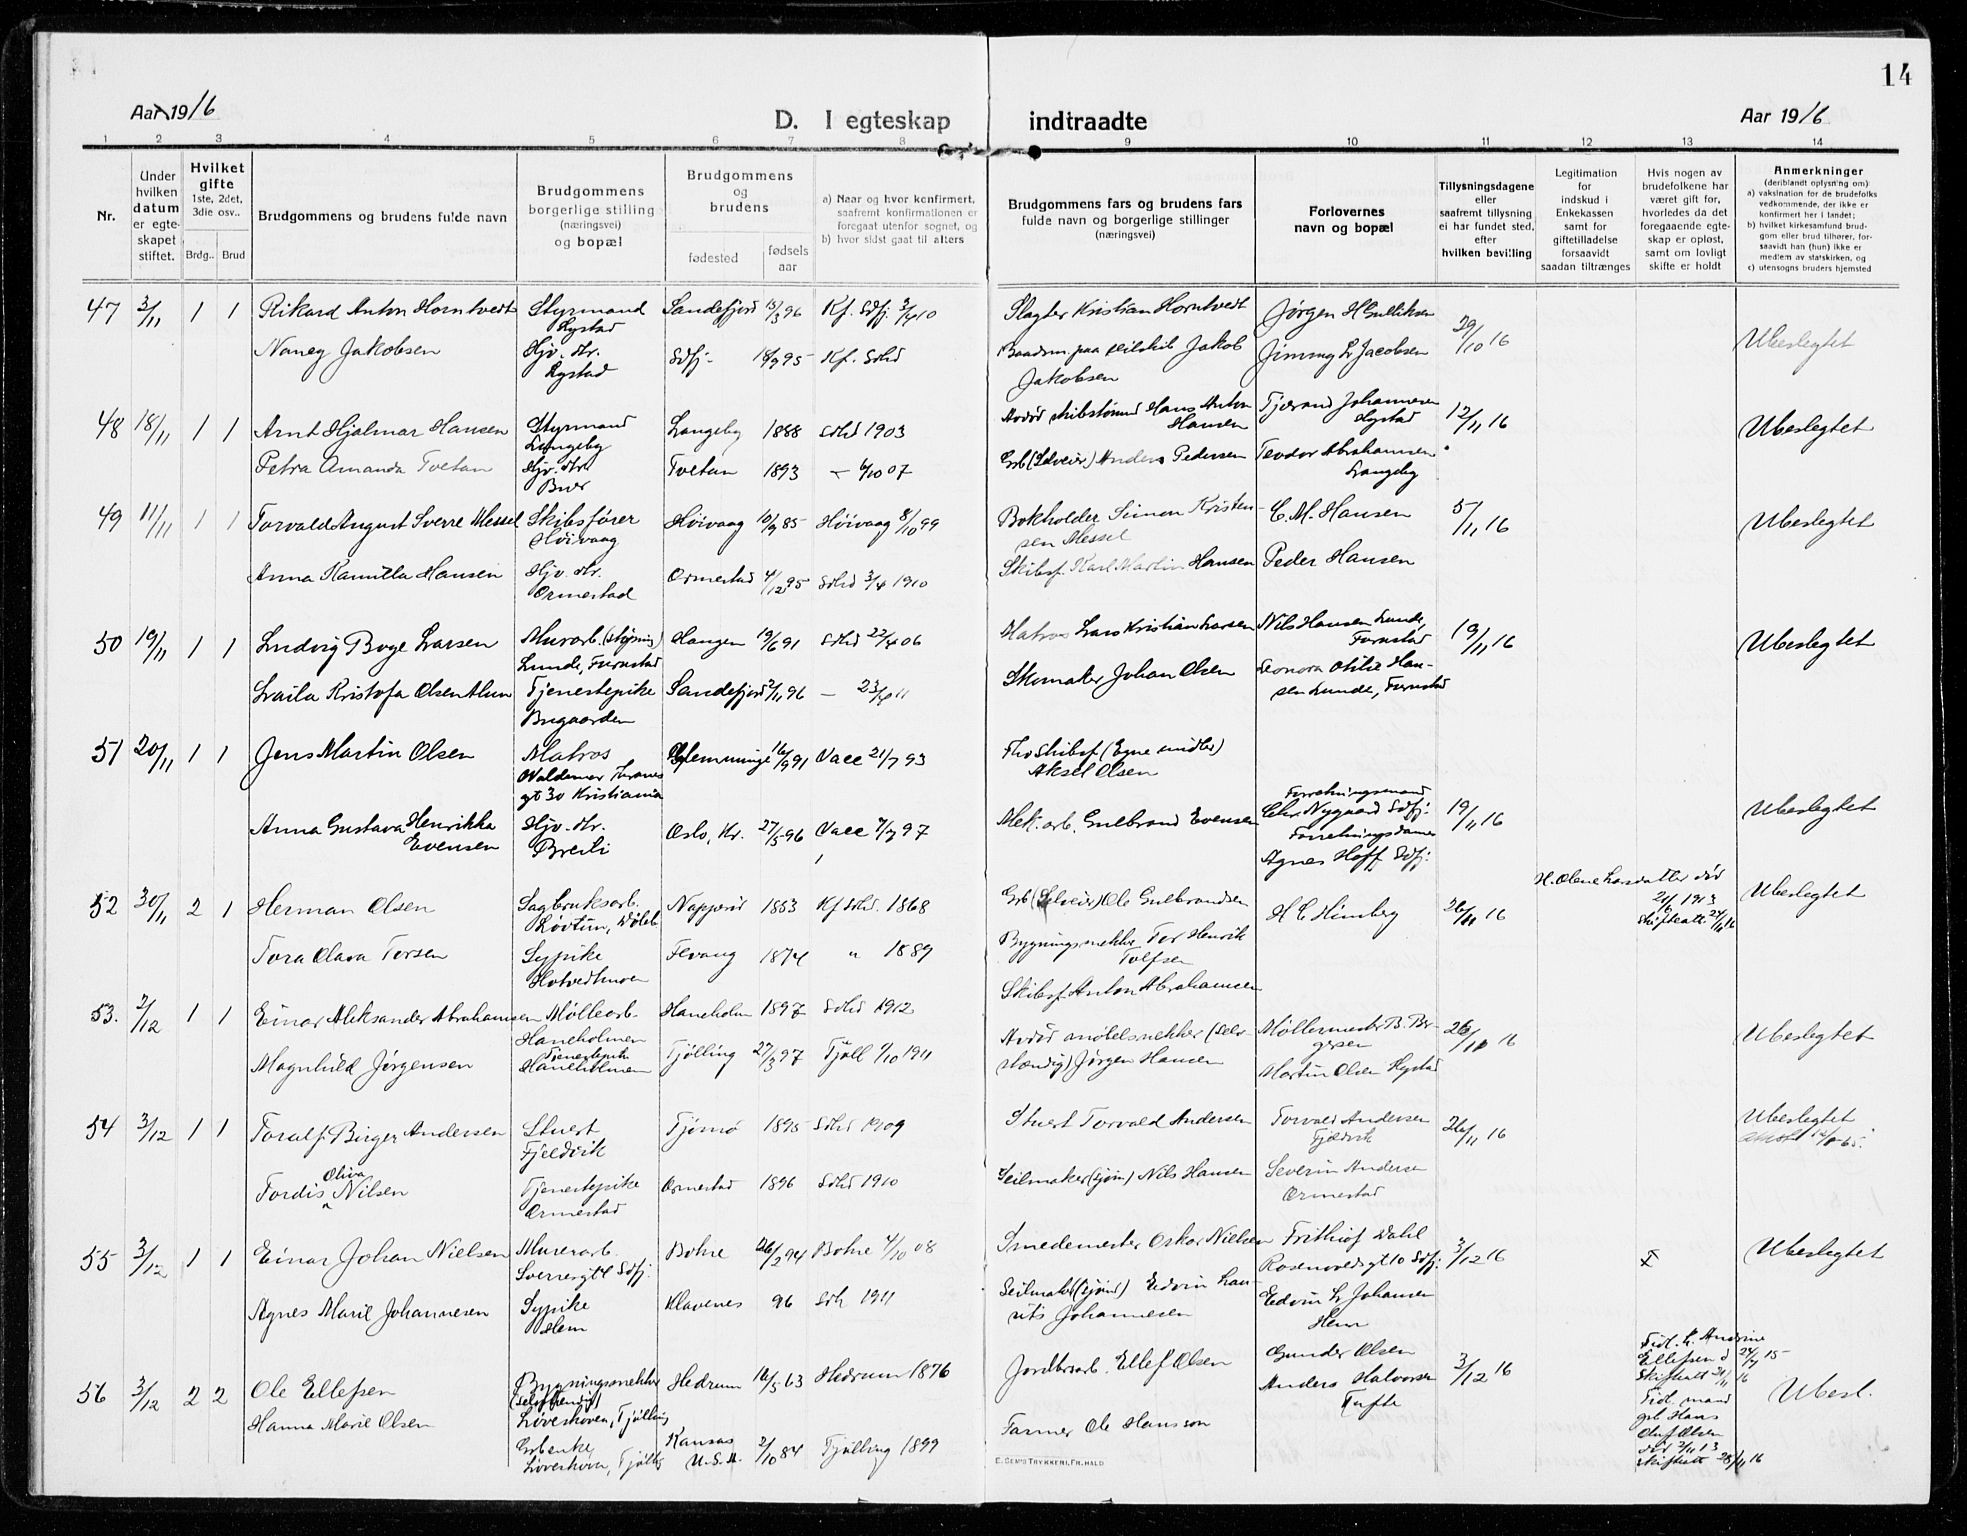 14
Aar 1916
D. I egteskap indtraadte
Aar 1916
1 2 3 4 5 6 7 8 9 10 11 12 13 14
Nr.
Under hvilken datum er egteskapet stiftet.
Hvilket gifte 1ste, 2det, 3die osv..
Brdg.. Brud
Brudgommens og brudens fulde navn
Brudgommens borgerlige stilling (næringsvei) og bopæl
Brudgommens og brudens
fødested
fødsels aar
a) Naar og hvor konfirmert, saafremt konfirmationen er foregaat utenfor sognet, og
b) hvor sidst gaat til alters
Brudgommens fars og brudens fars fulde navn og borgerlige stillinger (næringsvei)
Forlovernes navn og bopæl
Tillysningsdagene eller saafremt tillysning ei har fundet sted, efter hvilken bevilling
Legitimation for indskud i Enkekassen samt for giftetilladelse forsaavidt saadan tiltrænges
Hvis nogen av brudefolkene har været gift før, hvorledes da det foregaaende egteskap er opløst, samt om lovligt skifte er holdt
Anmerkninger (deriblandt oplysning om)
a) vaksination for de brudefolks vedkommende, der ikke er konfirmert her i landet;
b) hvilket kirkesamfund brudgom eller brud tilhører, forsaavidt han (hun) ikke er medlem av statskirken, og
c) utensogns bruders hjemsted
47 3/11 1 1 Rikard Anton Horntvedt Styrmand Hystad Sandefjord 13/3 96 Kf. Sdfj. 3/4 10 Slagter Kristian Horntvedt Jørgen H Gulliksen 29/10 16 Ubeslegtet
Nancy Jakobsen Hjv. dtr. Hystad Sdfj. 18/9 95 Kf. Sdhd Baadsm. paa seilskib Jakob Jakobsen Jimmy L Jacobsen
48 18/11 1 1 Arnt Hjalmar Hansen Styrmand Langeby Langeby 1888 Sdhd 1903 Avdød skibstømmd Hans Anton Hansen Tjerand Johannesen Hystad 12/11 16 Ubeslegtet
Petra Amanda Tvetan Hjv. dtr Buer Tvetan 1893 6/10 07 Grb (Selveier) Anders Pedersen Teodor Abrahamsen Langeby
49 11/11 1 1 Torvald August Sverre Messel Skibsfører Høivaag Høivaag 10/9 85 Høivaag 8/10 99 Bokholder Simon Kristensen Messel C. M. Hansen 5/11 16 Ubeslegtet
Anna Kamilla Hansen Hjv. dtr. Ormestad Ormestad 4/12 95 Sdhd 3/4 1910 Skibsf. Karl Martin Hansen Peder Hansen
50 19/11 1 1 Ludvig Boge Larsen Murarb. Lunde, Furustad Haugen 19/6 91 Sdhd 22/4 06 Matros Lars Kristian Larsen Nils Hansen Lunde, Furustad 19/11 16 Ubeslegtet
Laila Kristofa Olsen Tjenestepike Bugaarden Sandefjord 2/11 96 — 23/4 11 Skomaker Johan Olsen Leonora Otilie Hansen Lunde, Furustad
51 20/11 1 1 Jens Martin Olsen Matros Waldemar Thranes gt 30 Kristiania Glemminge 16/9 91 Vacc 21/7 93 Fhv Skibsf. (Egne midler) Aksel Olsen Forretningsmand Chr. Nygaard Sdfj. 19/11 16 Ubeslegtet
Anna Gustava Henrikka Evensen Hjv. dtr. Breili Oslo, Kr. 27/5 96 Vacc 7/7 97 Mek. arb. Gulbrand Evensen Forretningsdame Agnes Hoff Sdfj.
52 30/11 2 1 Herman Olsen Sagbruksarb. Napperød 1853 Kf Sdhd. 1868 Grb (Selveier) Ole Gulbrandsen H C Himberg 26/11 16 H. Olene Larsdatter død 1913 Skifteatt. Ubeslegtet
Tora Olava Torsen Sypike Hotvedtmoen Fevang 1874 " 1889 Bygningssnekker Tor Henrik Tolfsen
53. 2/12 1 1 Einar Aleksander Abrahamsen Møllearb. Haneholmen Haneholm 1897 Sdhd 1912 Skibsf. Anton Abrahamsen Møllermester B. Bergersen 26/11 16 Ubeslegtet
Magnhild Jørgensen Tjenestepike Haneholmen Tjølling 27/3 97 Tjøll 1/10 1911 Avdød møbelsnekker (selvstændig) Jørgen Hansen Martin Olsen Hystad
54 3/12 1 1 Toralf Birger Andersen Stuert Fjeldvik Tjømø 1895 Sdhd 1909 Stuert Torvald Andersen Torvald Andersen Fjeldvik 26/11 16 Ubeslegtet
Tordis Oliva Nilsen Tjenestepike Ormestad Ormestad 1896 Sdhd 1910 Seilmaker (Tjøm) Nils Hansen Severin Andersen Ormestad
55 3/12 1 1 Einar Johan Nielsen Murerarb. Sverresgt 4 Sdfj. Botne 26/2 94 Botne 4/10 08 Smedemester Oskar Nielsen Frithiof Dahl Rosenvoldsgt 10 Sdfj. 3/12 16 Ubeslegtet
Agnes Marie Johannesen Sypike Hem Klavenes 96 Sdh 1911 Seilmaker Edvin Laurits Johannesen Edvin L Johansen Hem
56 3/12 2 2 Ole Ellefsen Bygningssnekker (selvstændig) Løveskoven, Tjølling Hedrum 16/5 63 Hedrum 1876 Jordbrarb. Ellef Olsen Gunder Olsen 3/12 16 Tidl. h. Andrine Ellefsen d 24/7 15 Skifteatt 21/11 16 Ubesl.
Hanna Marie Olsen Grbenke Løveskoven, Tjøllg Kansas U.S.A. 2/10 84 Tjølling 1899 Farmer Ole Hansson Anders Halvorsen Tufte Tidl. mand grb Hans Oluf Olsen død 2/11 13 skifteatt 28/11 16
E. SEM'S TRYKKERI, FR.HALD